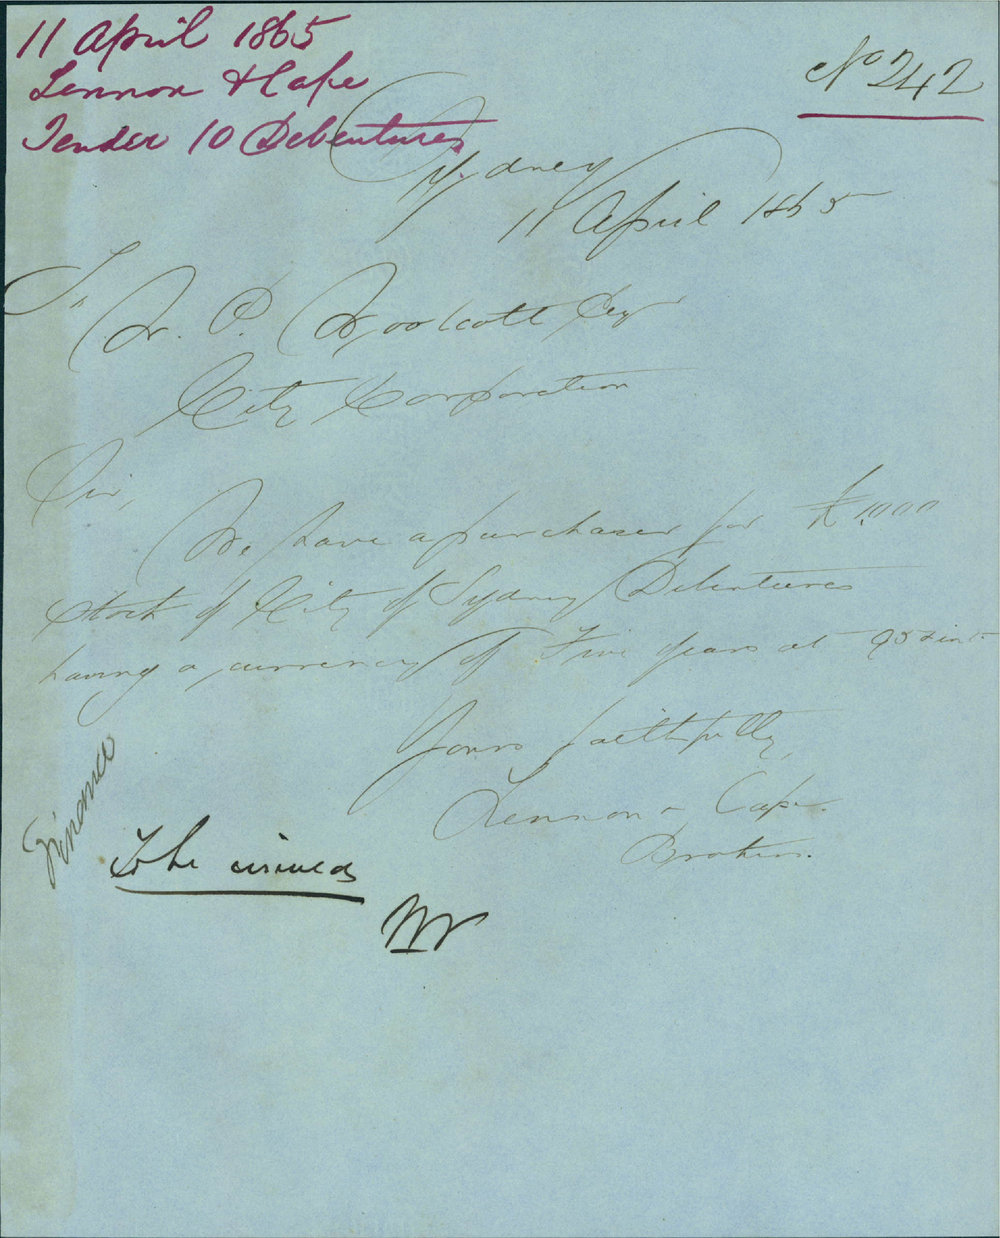 11 April 1865
Lennon & Cape
Tender 10 Debentures
No 242
Sydney
11 April 1865
To
W. P. Woolcott Esq
City Corporation
Sir,
We have a purchaser for £1,000
Stock of City of Sydney Debentures
having a currency of Five years at 95
Yours faithfully,
Lennon & Cape
Brokers.
Finance
To be